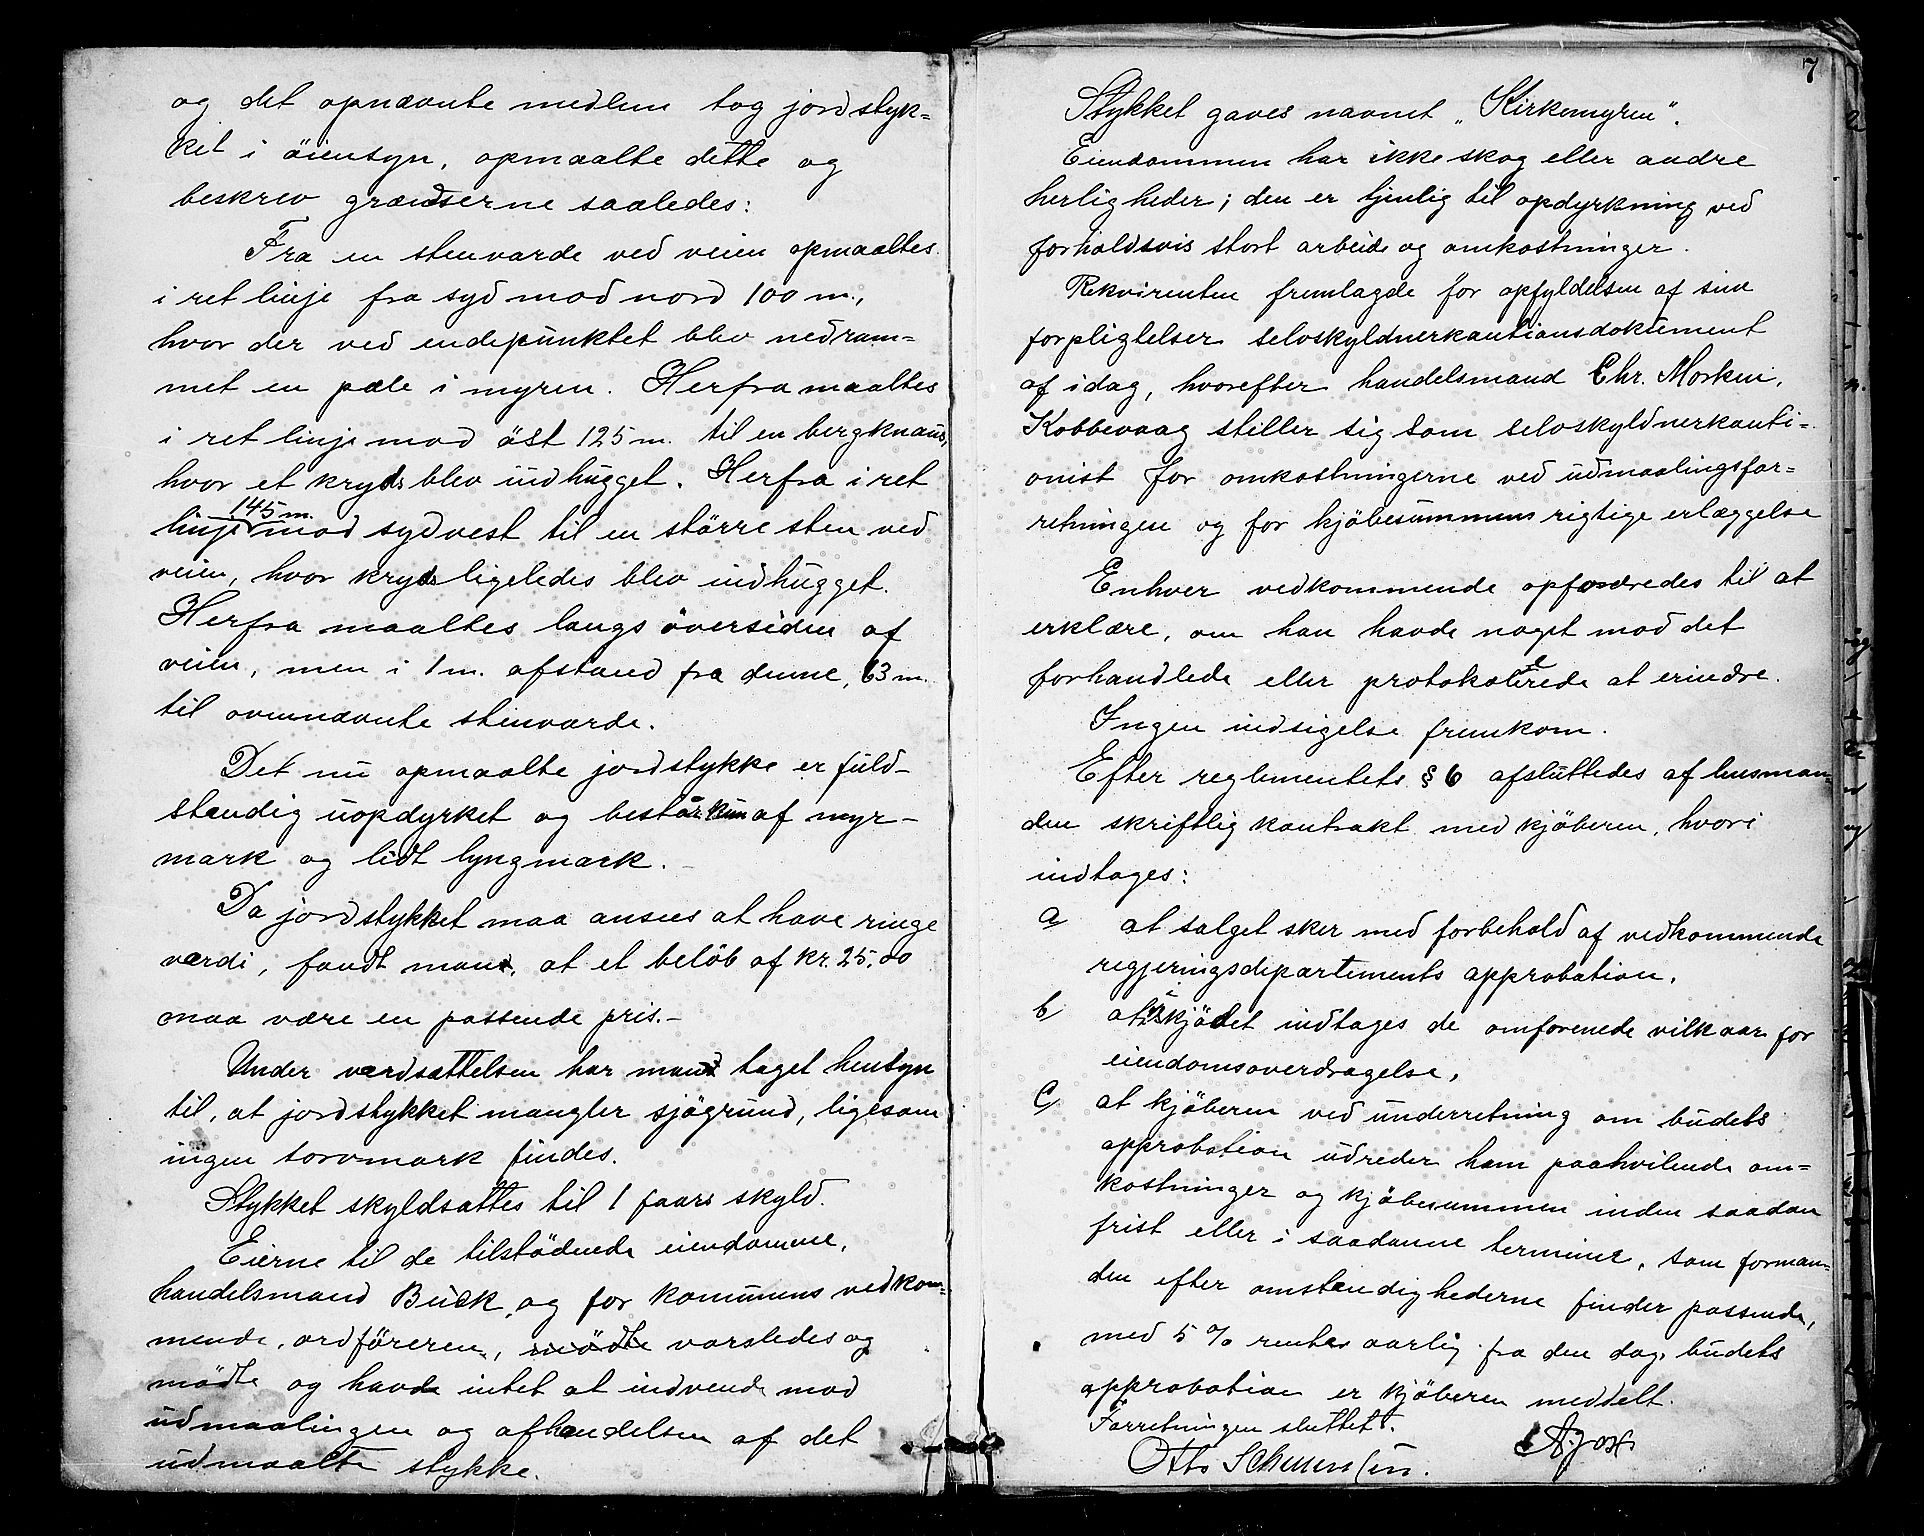 og det opnævnte medlem tog jordstyk-
ket i öiensyn, opmaalte dette og
beskrev grændserne saaledes:
Fra en stenvarde ved veien opmaaltes
i ret linje fra syd mod nord 100 m.,
hvor der ved endepunktet blev nedram-
met en pæle i myren. Herfra maaltes
i ret linje mod öst 125 m. til en bergknaus,
hvor et kryds blev indhugget. Herfra i ret
linje 145 m. mod sydvest til en större sten ved
veien, hvor kryds ligeledes blev indhugget.
Herfra maaltes langs översiden af
veien, men i 1 m. afstand fra denne, 63 m.
til ovennævnte stenvarde.
Det nu opmaalte jordstykke er fuld-
stændig uopdyrket og består kun af myr-
mark og lidt lyngmark.-
Da jordstykket maa ansees at have ringe
værdi, fandt man, at et belöb af kr. 25.00
maa være en passende pris.-
Under værdsættelsen har man taget hensyn
til, at jordstykket mangler sjögrund, ligesom
ingen torvmark findes.
Stykket skyldsattes til 1 faars skyld.
Eierne til de tilstödende eiendomme,
handelsmand Buck, og for kommunens vedkom-
mende, ordföreren, mödte varsledes og
mödte og havde intet at indvende mod
udmaalingen og afhændelsen af det
udmaalte stykke.
7
Stykket gaves navnet „Kirkemyren".
Eiendommen har ikke skog eller andre
herligheder; den er tjenlig til opdyrkning ved
forholdsvis stort arbeide og omkostninger.
Rekvirenten fremlagde for opfyldelsen af sine
forpligtelser selvskyldnerkautionsdokument
af idag, hvorefter handelsmand Chr. Morken,
Kobbevaag stiller sig som selvskyldnerkauti-
onist for omkostningerne ved udmaalingsfor-
retningen og for kjöbesummens rigtige erlæggelse
Enhver vedkommende opfordredes til at
erklære, om han havde noget mod det
forhandlede eller protokollerede at erindre.
Ingen indsigelse fremkom.
Efter reglementets § 6 afsluttedes af
den skriftlig kontrakt med kjöberen, hvori
indtages:
a) at salget sker med forbehold af vedkommende
regjeringsdepartements approbation.
b) at i skjödet indtages de omforenede vilkaar for
eiendomsoverdragelse,
c) at kjöberen ved underretning om budets
approbation udreder ham paahvilende om-
kostninger og kjöbesummen inden saadan
frist eller i saadanne terminer, som forman-
den efter omstændighederne finder passende,
med 5 % renter aarlig fra den dag, budets
approbation er kjöberen meddelt.
Forretningen sluttet.
Otto